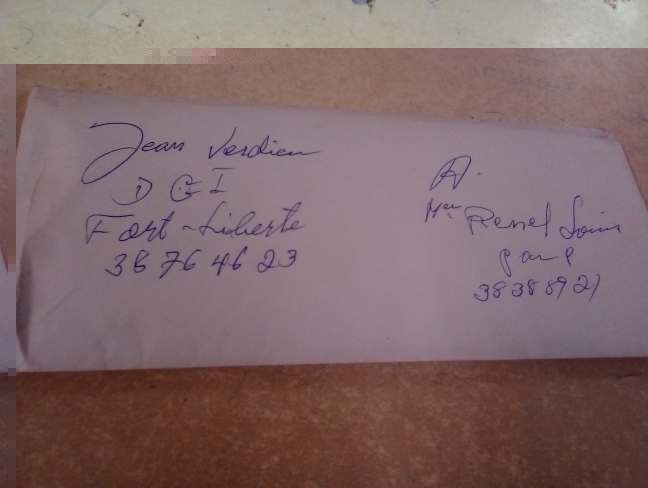 Jean Verdieu
DGI
Fort-Liberte
36 76 46 23
A.
Renel
38388921